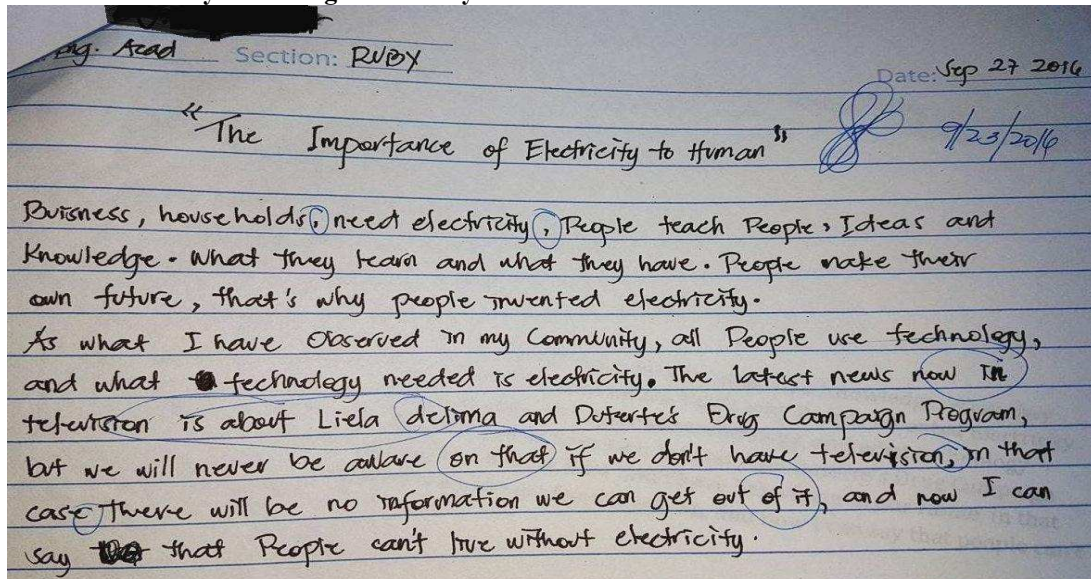 Eng. Acad Section: RUBY
Date: Sep 27 2016
"The Importance of Electricity to Human" 9/23/2016
Buisness, households, need electricity, People teach People, Ideas and
Knowledge. What they learn and what they have. People make their
own future, that's why people invented electricity.
As what I have Observed in my Community, all People use technology,
and what technology needed is electricity. The latest news now in
television is about Liela delima and Duterte's Drug Campaign Program,
but we will never be aware on that if we don't have television, in that
case, there will be no information we can get out of it, and now I can
say that People can't live without electricity.